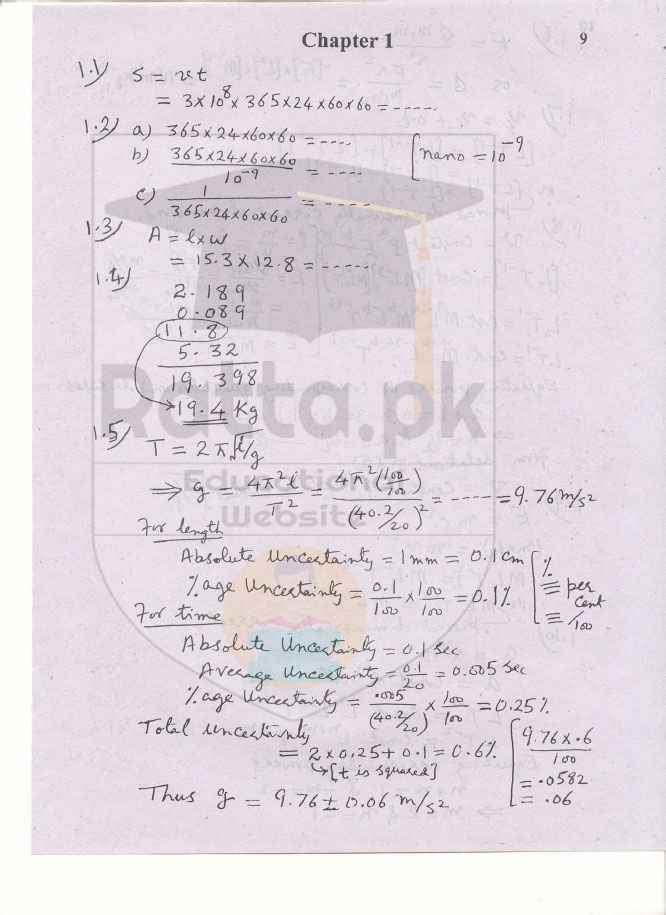 Chapter 1
9
1.1) S = vt
= 3×10⁸×365×24×60×60 = -----
1.2) a) 365×24×60×60 = ----
b) 365×24×60×60 / 10⁻⁹ = ----
[nano = 10⁻⁹
c) 1 / 365×24×60×60 = -----
1.3) A = l×w
= 15.3×12.8 = -----
1.4)
2.189
0.089
11.8
5.32
19.398
19.4 Kg
Ratta.pk
Educational
Website
1.5) T = 2π√l/g
⇒ g = 4π²l / T² = 4π²(100/100) / (40.2/20)² = ---- = 9.76 m/s²
For length
Absolute Uncertainty = 1mm = 0.1cm
%age Uncertainty = 0.1/100 × 100/100 = 0.1%
[%
≡ per
cent
≡ /100
For time
Absolute Uncertainty = 0.1 sec
Average Uncertainty = 0.1/20 = 0.005 sec
%age Uncertainty = .005/(40.2/20) × 100/100 = 0.25%
Total uncertainty
= 2×0.25+0.1 = 0.6%
↳[t is squared]
[9.76×.6 / 100
= .0582
= .06
Thus g = 9.76 ± 0.06 m/s²